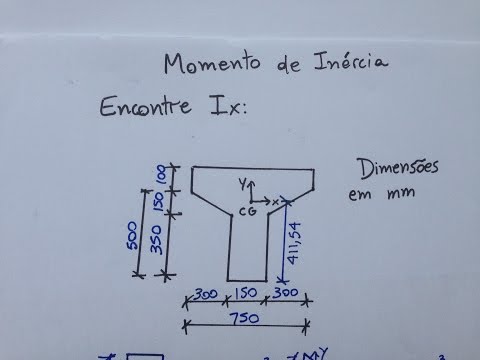 Momento de Inércia
Encontre Ix:
Dimensões
em mm
100
150
350
500
Y
x
CG
411,54
300 150 300
750